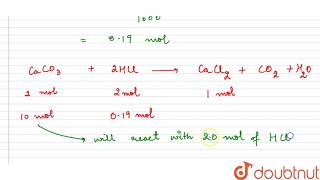 1000
= 0.19 mol
CaCO3 + 2HCl → CaCl2 + CO2 + H2O
1 mol 2 mol 1 mol
10 mol 0.19 mol
→ will react with 20 mol of HCl
doubtnut